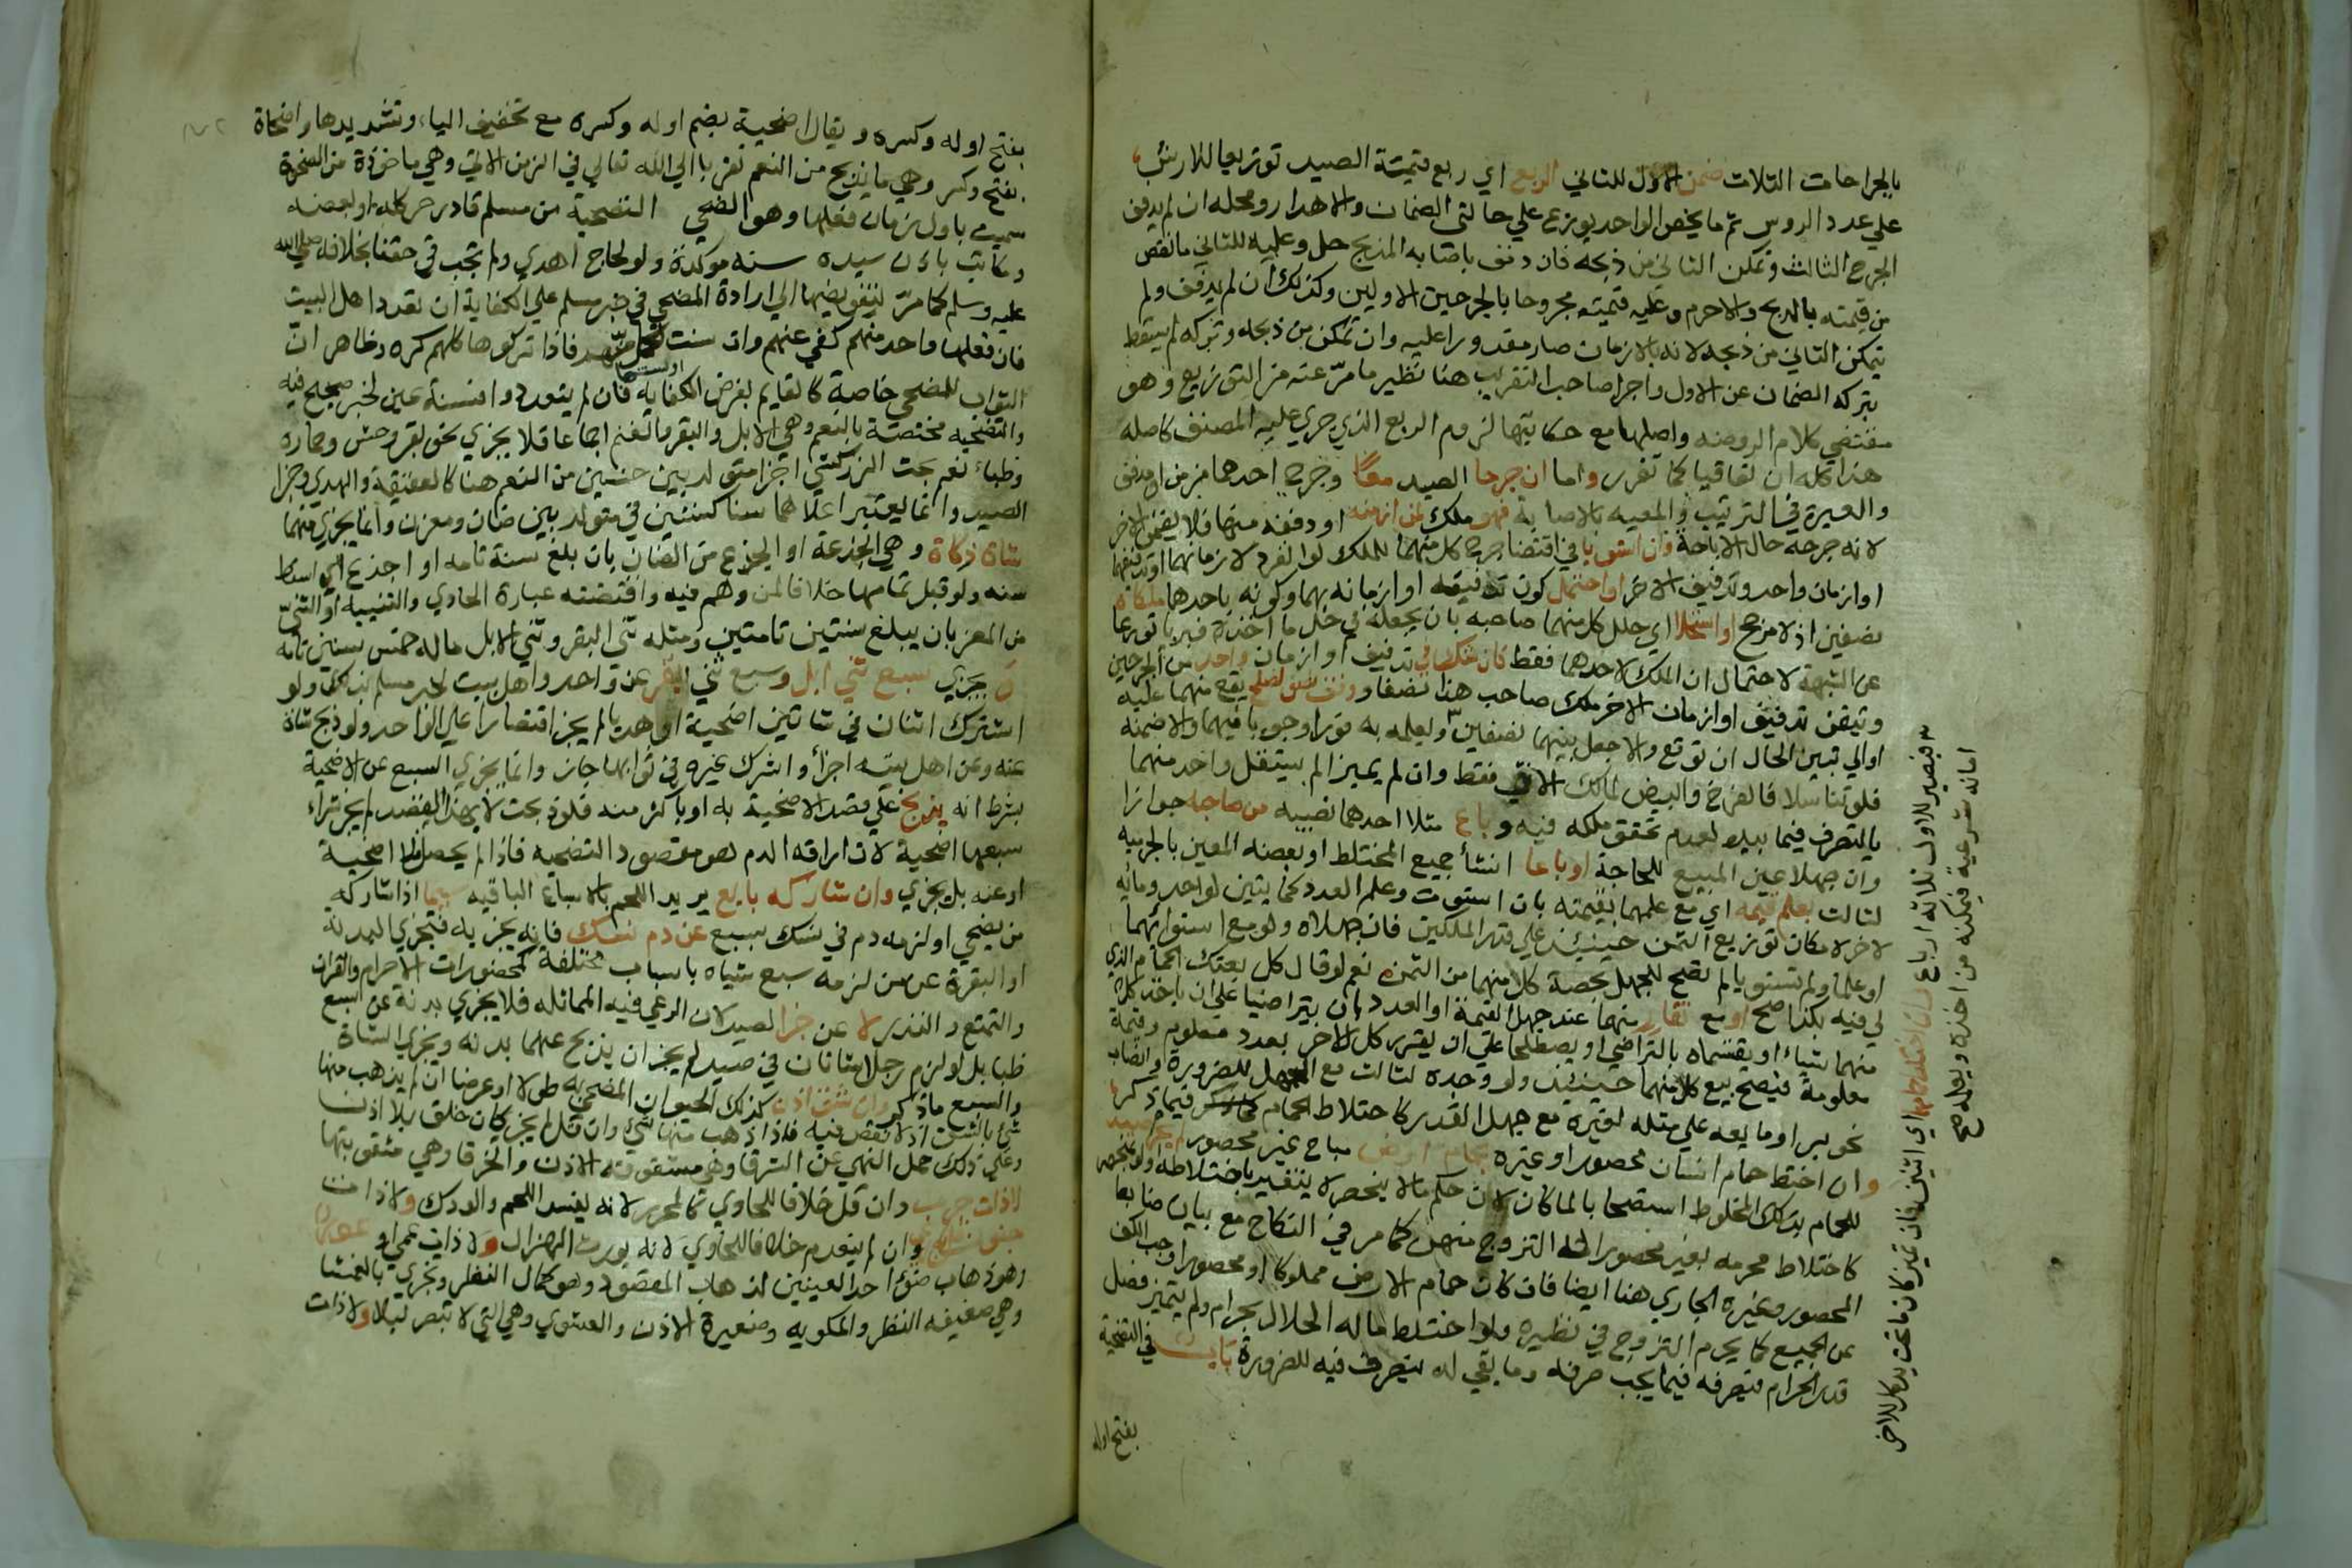 بالجراحات الثلاث ضمن الاول للثاني الربع اي ربع قيمة الصيد توزيعا للارش
علي عدد الروس ثم ما يخص الواحد يوزع علي حالتي الضمان والاهدار ومحله ان لم يدفف
الجرح الثالث وتمكن الثاني من ذبحه فان دفف باصابه المذبح حل وعليه للثاني ما نقص
من قيمته بالذبح والا حرم وعليه قيمته مجروحا بالجرحين الاولين وكذلك ان لم يدفف ولم
يتمكن الثاني من ذبحه لانه بالازمان صار مقدورا عليه وان تمكن من ذبحه وتركه لم يسقط
بتركه الضمان عن الاول واجرا صاحب التقريب هنا نظير ما مر عنه من التوزيع وهو
مقتضي كلام الروضه واصلها مع حكايتها لزوم الربع الذي جري عليه المصنف كاصله
هذا كله ان تعاقبا كما تقرر واما ان جرحا الصيد معا وجرح احدهما مزمن او مدفف
والعبرة في الترتيب والمعيه بالاصابة فهو ملك لمن ازمنه او دففه منهما فلا يضمن الاخر
لانه جرحه حال الاباحة وان استويا في اقتضا جرح كل منهما للملك لو انفرد لازمانهما او تدفيفهما
او ازمان واحد وتدفيف الاخر او احتمل كون تدفيقه او ازمانه بهما وكونه باحدهما ملكاه
نصفين اذ لا مرجح او استحلا اي حلل كل منهما صاحبه بان يجعله في حل ما اخذه فيربا تورعا
عن الشبهة لاحتمال ان الملك لاحدهما فقط فان شك في تدفيف او ازمان واحد من الجرحين
وتيقن تدفيف او ازمان الاخر ملك صاحب هذا نصفا ووقف نصف لصلح يقع منهما عليه
او الي تبين الحال ان توقع والا جعل بينهما نصفين ٣ ويعلمه به فورا وجوبا فيهما والا ضمنه
فلو تناسلا فالفرخ والبيض لمالك الانثي فقط وان لم يميزا لم يستقل واحد منهما
بالتصرف فيما بيده لعدم تحقق ملكه فيه وباع مثلا احدهما نصيبه من صاحبه جوازا
وان جهلا عين المبيع للحاجة او باعا انشأ جميع المختلط او بعضه المعين بالجزييه
لثالث بعلم قيمه اي مع علمهما بقيمته بان استوت وعلم العدد كمايتين لواحد ومائه
لاخر لامكان توزيع الثمن حينئذ علي قدر الملكين فان جهلاه ولو مع استوائهما
او علما ولم تستويا لم يصح للجهل بحصة كل منهما من الثمن نعم لو قال كل بعتك الحمام الذي
لي فيه بكذا صح او مع تقار منهما عند جهل القيمة او العدد بان يتراضيا علي ان ياخذ كل
منهما شياء او يقتسماه بالتراضي او يصطلحا علي ان يقر كل للاخر بعدد معلوم وقيمة
معلومة فيصح بيع كل منهما حينئذ ولو وحده لثالث مع الجهل للضرورة والضاب
نحو بر او مايعه علي مثله لغيره مع جهل القدر كاختلاط الحمام فيما ذكر
وان اختلط حمام انسان محصور او غيره بحمام ارض مباح غير محصور لم يحرم صيد
للحمام بذلك المخلوط استصحابا لما كان لان حكم ما لا ينحصر لا يتغير باختلاطه ولو بمنحصر
كاختلاط محرمه بغير محصور له التزوج منهن كما مر في النكاح مع بيان ضابط
المحصور وغيره الجاري هنا ايضا فان كان حمام الارض مملوكا او محصورا وجب الكف
عن الجميع كما يحرم التزوج في نظيره ولو اختلط ماله الحلال بحرام ولم يتميز فصل
قدر الحرام فيصرفه فيما يجب صرفه وما بقي له يتصرف فيه للضرورة باب في التضحية
بفتح اوله
٣ فيصير للاول ثلاثة ارباع اي اثنين فان تميز كان ما تحت يد كل للاخر
امانه شرعية فيمكنه من اخذه ويعلمه صح
بفتح اوله وكسره ويقال اضحية بضم اوله وكسره مع تخفيف الياء وتشديدها واضحاة
بفتح وكسر وهي ما يذبح من النعم تقربا الي الله تعالي في الزمن الاتي وهي ماخوذة من الضحوة
سميت باول زمان فعلها وهو الضحي التضحية من مسلم قادر حر كله او بعضه
ومكاتب باذن سيده سنه موكدة ولو لحاج اهدي ولم تجب في حقنا بخلافه صلي الله
عليه وسلم كما مر لتفويضها الي ارادة المضحي في خبر مسلم علي الكفاية ان تعدد اهل البيت
فان فعلها واحد منهم كفي عنهم وان سنت لكل منهم فاذا تركوها كلهم كره وظاهر ان
الثواب للمضحي خاصة كالقايم بفرض الكفايه فان لم يتعددوا فسنة عين لخبر صحيح فيه
والتضحيه مختصة بالنعم وهي الابل والبقر والغنم اجماعا فلا يجزي نحو بقر وحش وحماره
وظباء نعم بحث الزركشي اجزا متولد بين جنسين من النعم هنا كالعقيقة والهدي وجزا
الصيد وانما يعتبر اعلاهما سنا كسنتين في متولد بين ضان ومعز وانما يجزي منهما
شاة زكاة وهي الجذعة او الجذع من الضان بان بلغ سنة تامه او اجذع اي اسقط
سنه ولو قبل تمامها خلافا لمن وهم فيه واقتضته عبارة الحاوي والثنييه او الثني
من المعز بان يبلغ سنتين تامتين ومثله ثني البقر وثني الابل ما له خمس سنين تامه
ويجزي سبع ثني ابل وسبع ثني البقر عن واحد واهل بيت لخبر مسلم بذلك ولو
اشترك اثنان في شاتين اضحية او هديا لم يجز اقتصارا علي الواحد ولو ذبح شاة
عنه وعن اهل بيته اجزأ واشرك غيره في ثوابها جاز وانما يجزي السبع عن الاضحية
بشرط انه يذبح علي قصد الاضحية به او باكثر منه فلو ذبحت لا بهذا القصد لم يجز شراء
سبعها اضحية لان اراقه الدم هو مقصود التضحيه فاذا لم يحصل اضحية
او عنه بل يجزي وان شاركه بايع يريد اللحم بالاسباع الباقيه اذا شاركه
من يضحي او لزمه دم في نسك سبع عن دم نسك فانه يجزيه فتجزي البدنة
او البقرة عن من لزمه سبع شياه باسباب مختلفة كمحضورات الاحرام والقران
والتمتع والنذر لا عن جزا لصيد لان المرعي فيه المماثله فلا يجزي بدنة عن سبع
ظبا بل لو لزم رجلا شاتان في صيد لم يجز ان يذبح عنهما بدنه ويجزي الشاة
والسبع ماذكر وان شق اذن كذلك الحيوان المضحي به طولا او عرضا ان لم يذهب منها
شئ بالشق اذ لا نقص فيه فاذا ذهب منها شئ وان قل لم يجز كان خلق بلا اذن
وعلي ذلك حمل النهي عن الشرقا وهي مشقوقة الاذن والخرقا وهي مثقوبتها
لا ذات جرب وان قل خلافا للحاوي كالمحرر لانه يفسد اللحم والودك ولا ذات
جنون وان لم يتقدم خلافا للحاوي لانه يورث الهزال ولا ذات عمي او عور
وهو ذهاب ضوء احد العينين لذهاب المقصود وهو كمال النظر وتجزي بالعمشا
وهي ضعيفه النظر والمكويه وصغيرة الاذن والعشوي وهي التي لا تبصر ليلا ولا ذات